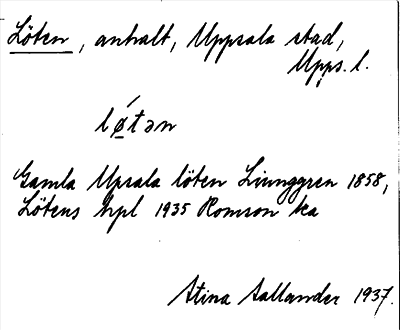 Löten, anhalt, Uppsala stad,
Upps. l.
lǿtən
Gamla Upsala löten Ljunggren 1858,
Lötens hpl 1935 Romson ka
Stina Sallander 1937.